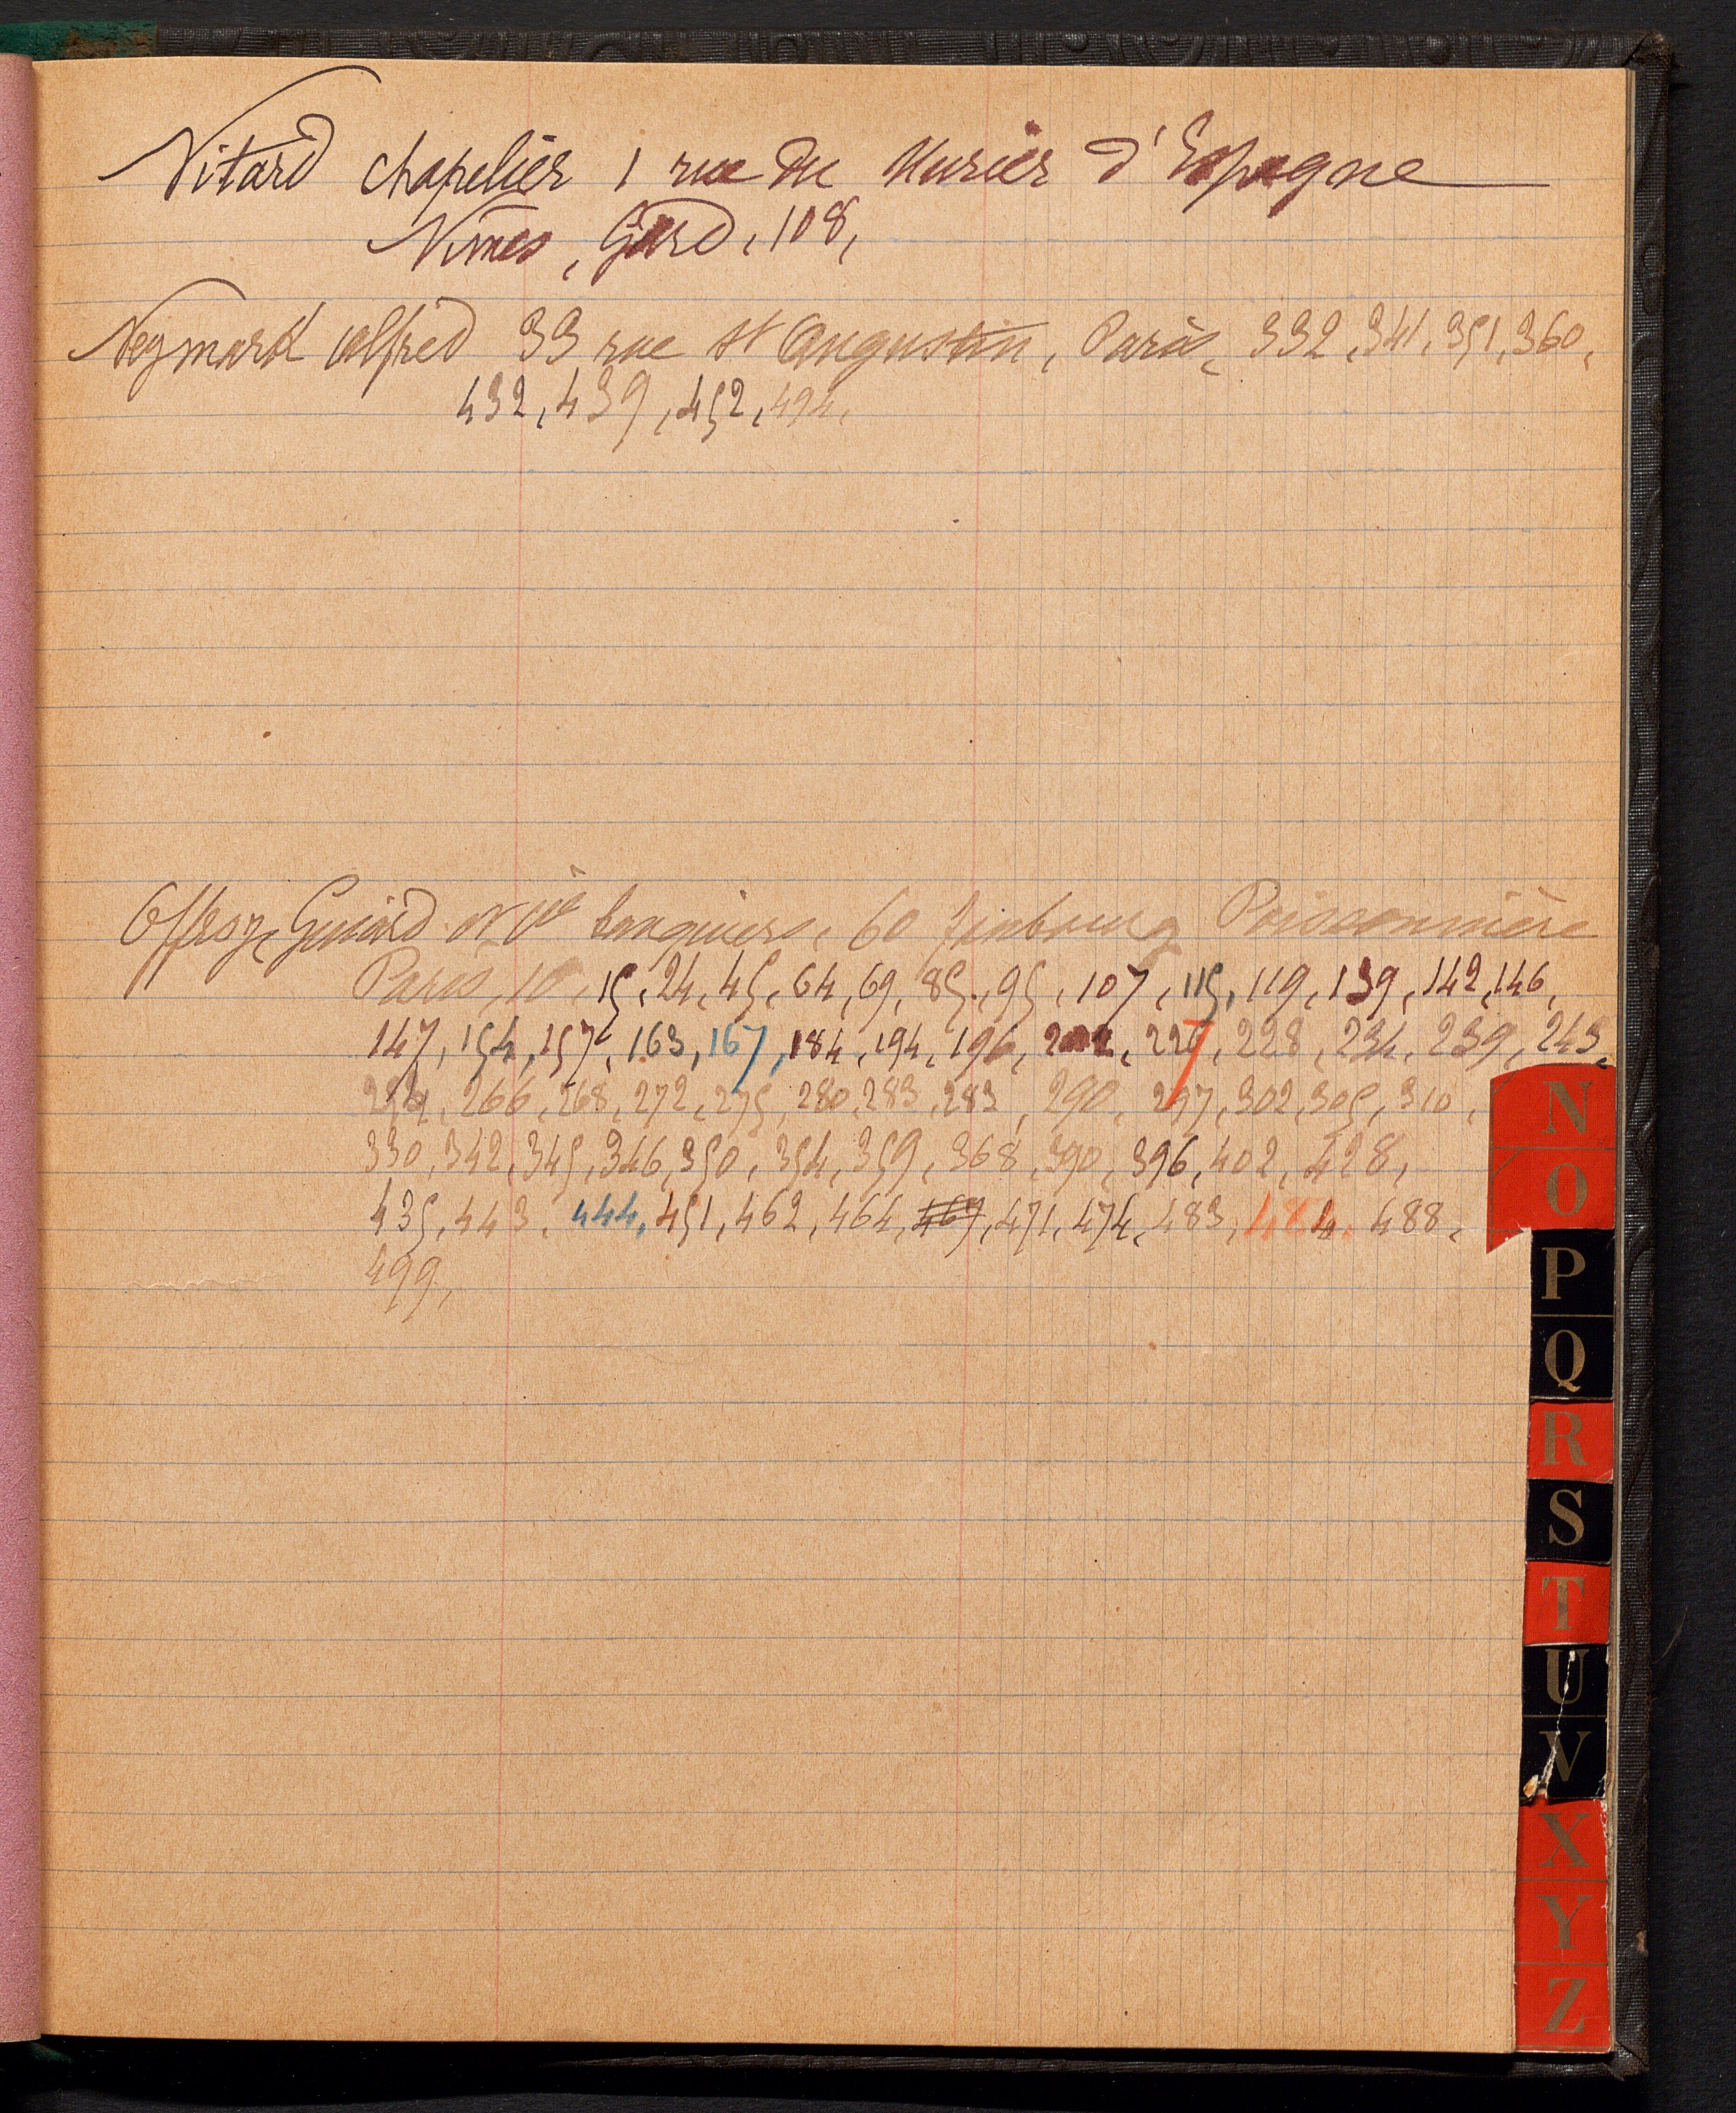 Nitard chapelier 1 rue du Murier d'Espagne
Nimes, Gard, 108,
Neymark Alfred 33 rue St Augustin, Paris, 332, 341, 351, 360,
432, 439, 452, 494,
Offroy, Guiard et Cie banquiers, 60 faubourg Poissonnière
Paris, 10, 15, 24, 45, 64, 69, 85, 95, 107, 115, 119, 139, 142, 146,
147, 154, 157, 163, 167, 184, 194, 196, 227, 228, 234, 239, 243,
266, 268, 272, 275, 280, 283, 283, 290, 297, 302, 305, 310,
330, 342, 345, 346, 350, 354, 359, 368, 390, 396, 402, 428,
435, 443, 444, 451, 462, 464, 469, 471, 474, 483, 484, 488,
499,
N
O
P
Q
R
S
T
U
V
X
Y
Z